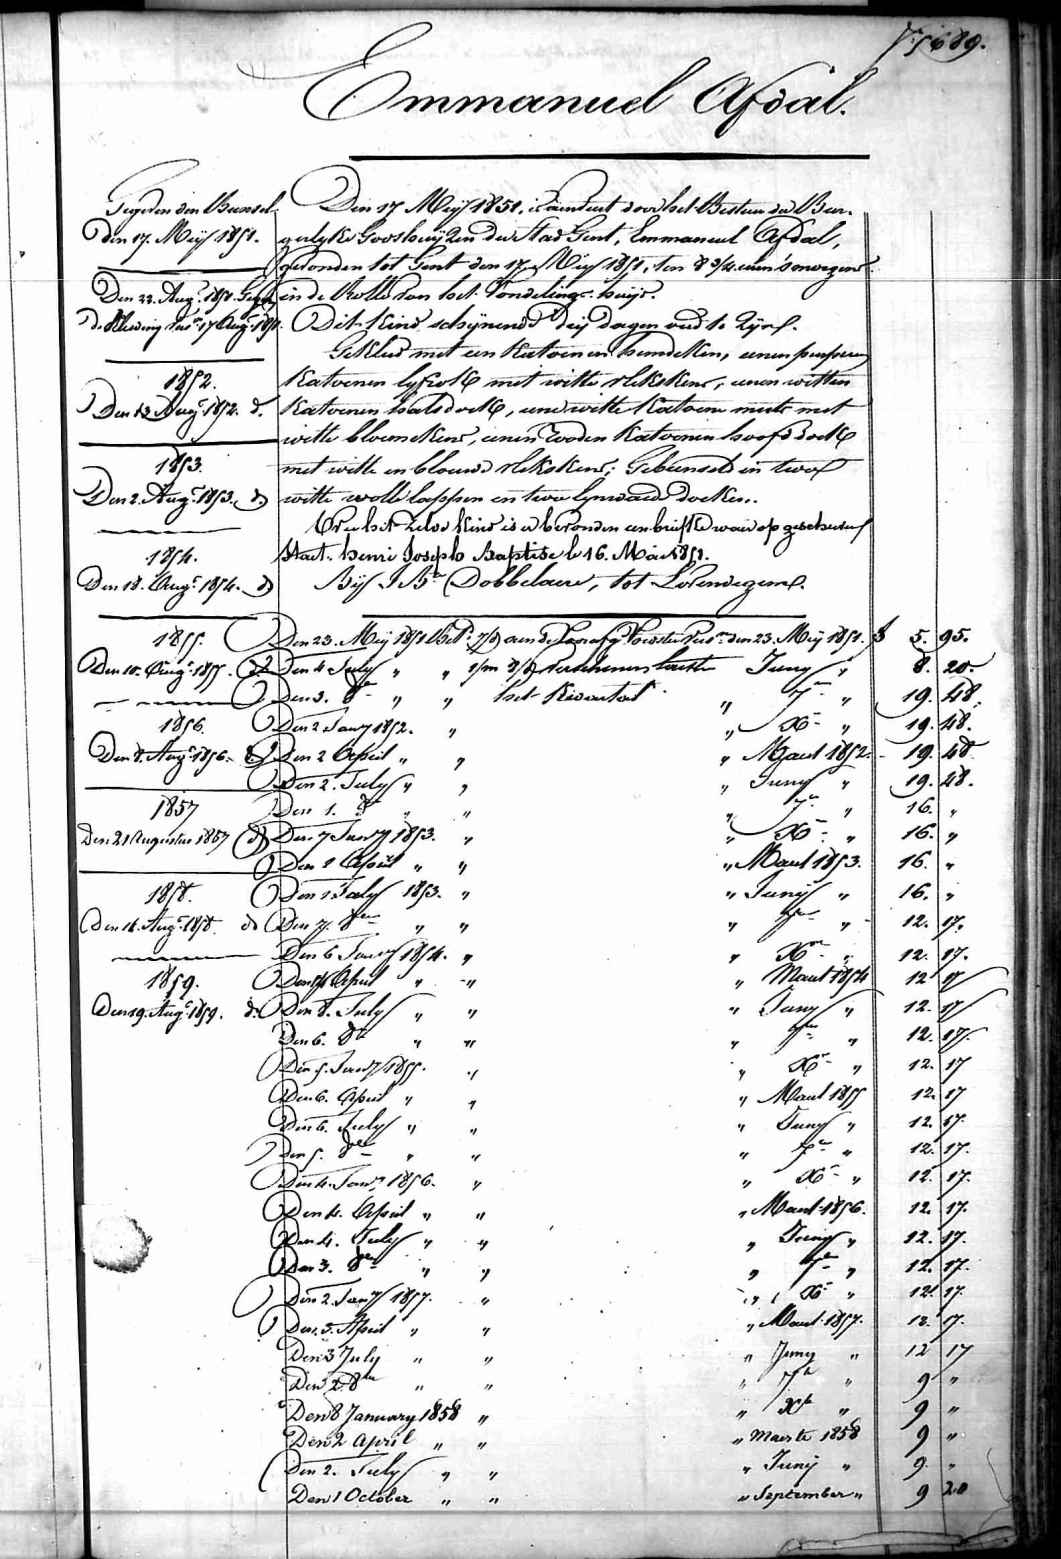 689.
Emmanuel Afdal.
Gegeven den Bunsel
den 17. Meij 1851.
Den 22. Augt. 1851.
de Kleeding 17 Augt. 1851.
1852.
Den 13 Augt. 1852. d.
1853.
Den 2. Augt. 1853. d.
1854.
Den 18. Augt. 1854. d.
1855.
Den 10. Augt. 1855. d.
1856.
Den 8. Augt. 1856. d.
1857
Den 21 Augustus 1857 d.
1858.
Den 16. Augt. 1858. d.
1859.
Den 19. Augt. 1859. d.
Den 17 Meij 1851. is door het Bestuur der Bur-
gerlyke Godshuyzen der Stad Gent, Emmanuel Afdal,
gevonden tot Gent den 17 Meij 1851, ten 8 3/4 uren 's morgens
in de Rolle van het Vondelings-huijs.
Dit Kind schynende dry dagen oud te Zyn.
Gekleed met een Katoenen hemdeken, eenen purperen
Katoenen lyfrok met witte vlekskens, eenen witten
Katoenen halsdoek, eene witte Katoene muts met
witte bloemekens, eenen rooden Katoenen hoofddoek
met witte en blauwe vlekskens; Gebunseld in twee
witte wolle lappen en twee lynwaede doeken.
het zelve Kind is er bevonden een briefke waer op geschreven
Staet. henri Joseph Baptise le 16. Mai 1851.
Bij J. Bte. Dobbelaere, tot Lovendegem.
Den 23. Meij 1851 den 23. Meij 1851. 5. 95.
Den 4 July " " Juny " 8. 20.
Den 3. 8re " " het Kwartael " 7re " 19. 48.
Den 2 Jany 1852. " " Xre " 19. 48.
Den 2 April " " " Maert 1852. 19. 48
Den 2. July " " " Juny " 19. 48.
Den 1. 8re " " " 7re " 16. "
Den 7 Jany 1853. " " Xre " 16. "
Den 1 April " " " Maert 1853. 16. "
Den 1 July 1853. " " Junij " 16. "
Den 7. 8re " " " 7re " 12. 17.
Den 6 Jany 1854. " " Xre " 12. 17.
Den April " " " Maert 1854 12 17
Den 8. July " " " Juny " 12. 17
Den 6. 8re " " " 7re " 12. 17.
Den 5. Jany 1855. " " Xre " 12. 17
Den 6. April " " " Maert 1855 12. 17
Den 6. July " " " Juny " 12. 17.
Den 5. 8re " " " 7re " 12. 17.
Den 4. Jany 1856. " " Xre " 12. 17.
Den 4. April " " " Maert 1856. 12. 17.
Den 4. July " " " Juny " 12. 17.
Den 3. 8re " " " 7re " 12. 17.
Den 2. Jany 1857. " " Xre " 12. 17.
Den 3. April " " " Maert 1857. 12. 17.
Den 3 July " " " Juny " 12 17
Den 2. 8re " " " 7re " 9 "
Den 8 January 1858 " " Xre " 9 "
Den 2 April " " " Maerte 1858 9 "
Den 2. July " " " Junij " 9. "
Den 1 October " " " September " 9 20